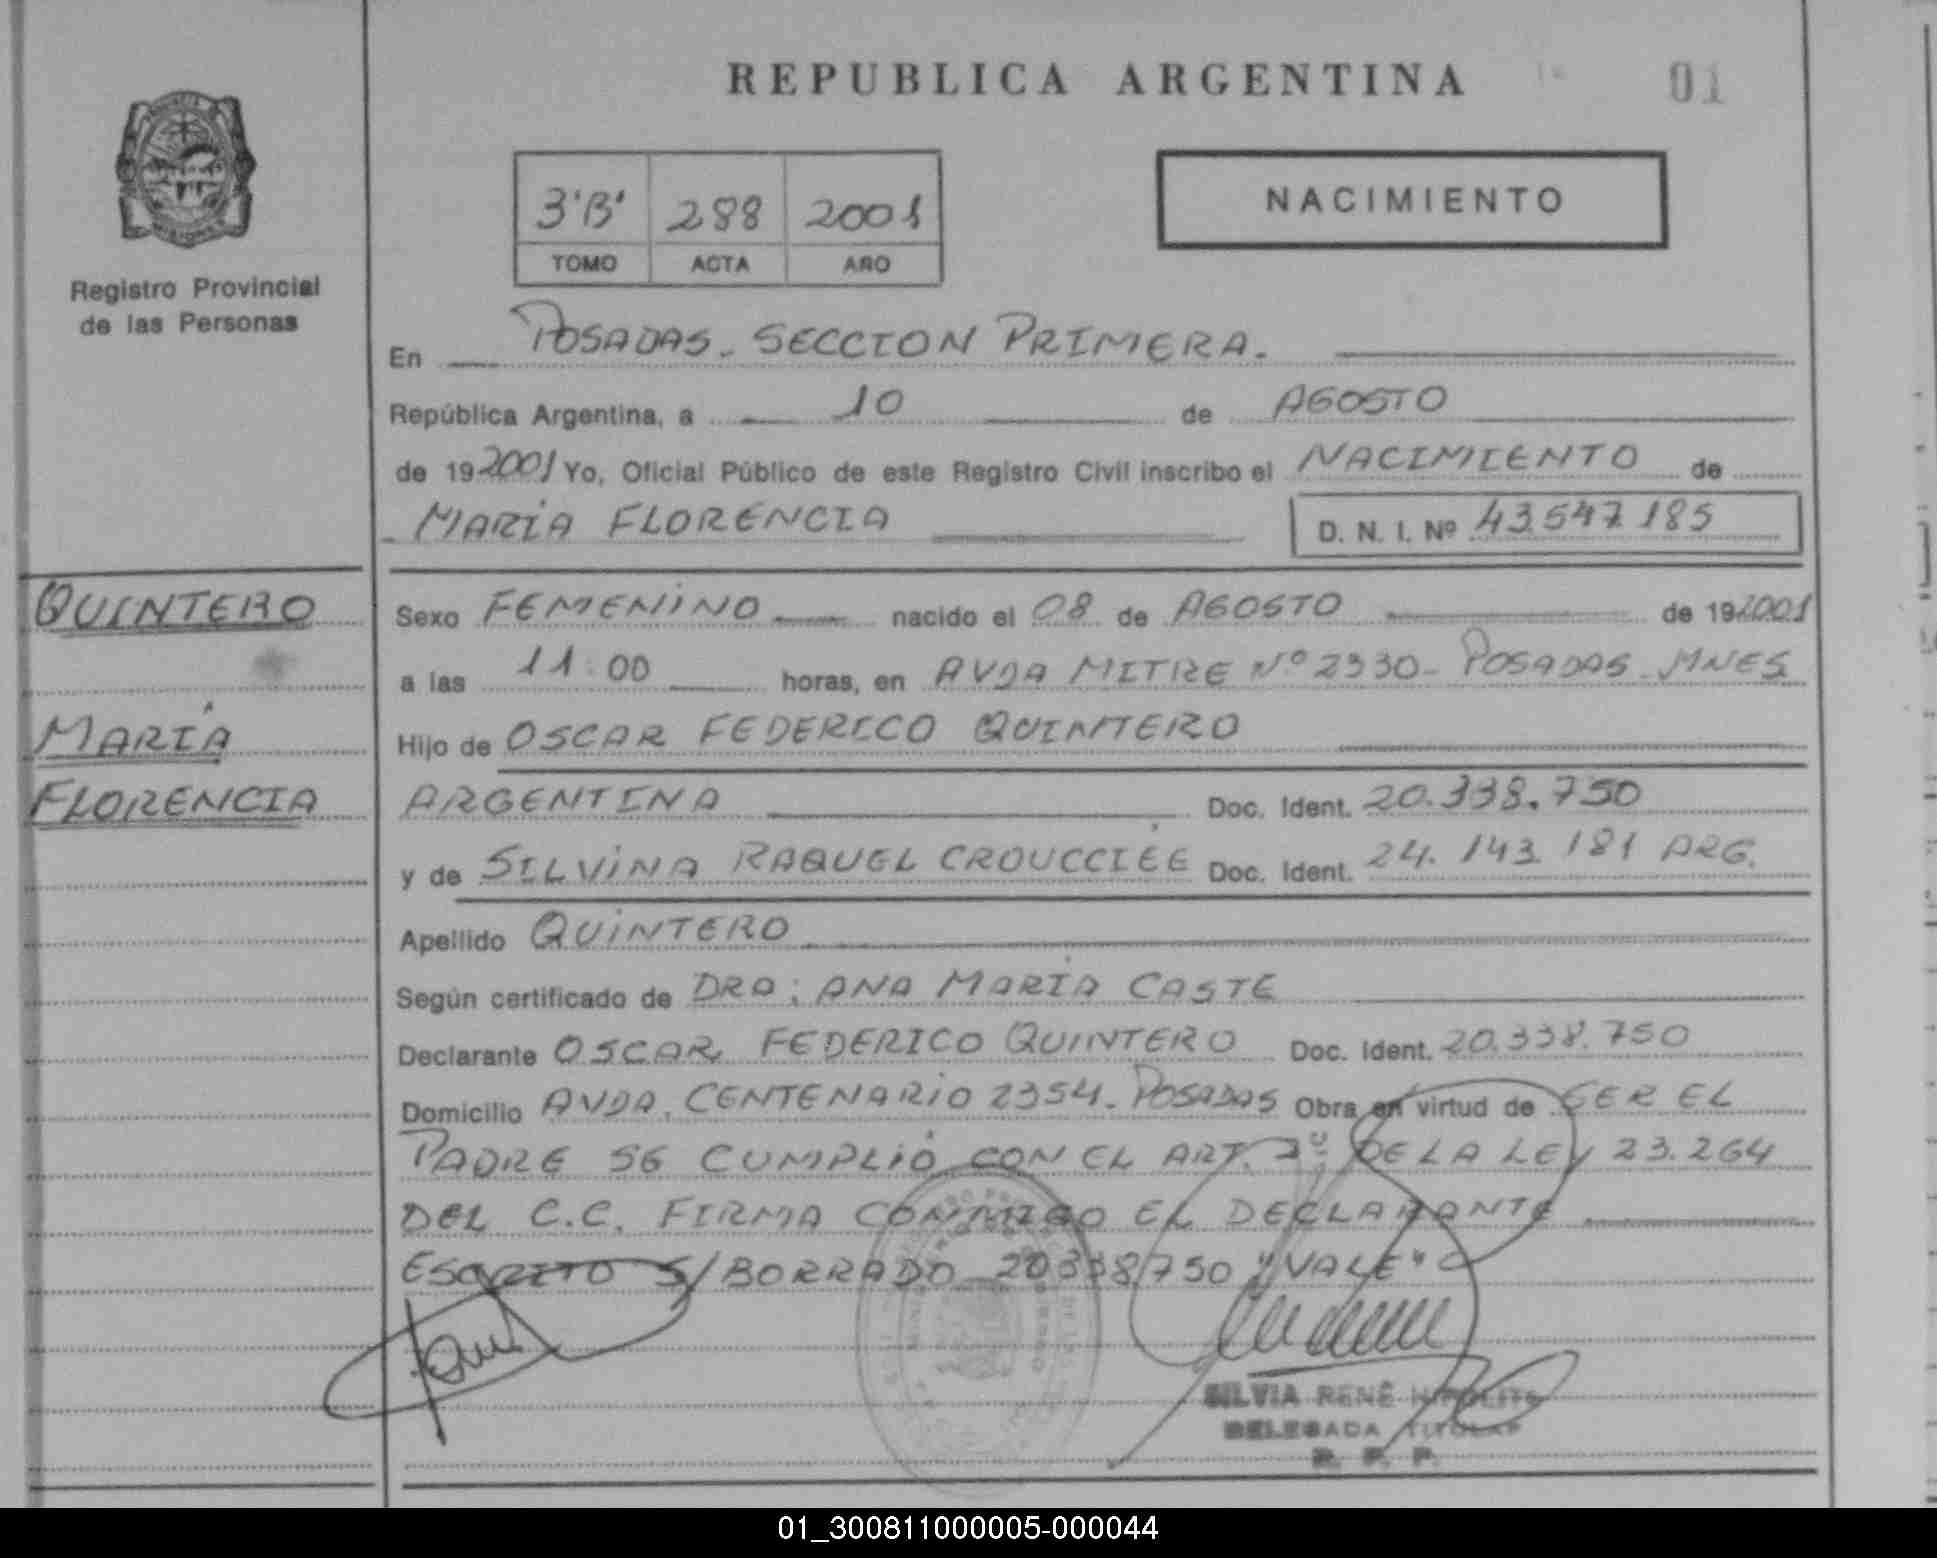 REPUBLICA ARGENTINA
01
3'B' 288 2001
TOMO ACTA AÑO
NACIMIENTO
Registro Provincial
de las Personas
En POSADAS. SECCION PRIMERA.
República Argentina, a 10 de AGOSTO
de 19 2001 Yo, Oficial Público de este Registro Civil inscribo el NACIMIENTO de
MARÍA FLORENCIA D. N. I. Nº 43.547.185
QUINTERO
MARÍA
FLORENCIA
Sexo FEMENINO nacido el 08 de AGOSTO de 19 2001
a las 11:00 horas, en AVDA MITRE Nº 2330- POSADAS MNES
Hijo de OSCAR FEDERICO QUINTERO
ARGENTINA Doc. Ident. 20.338.750
y de SILVINA RAQUEL CROUCCIÉE Doc. Ident. 24.143.181 ARG.
Apellido QUINTERO
Según certificado de DRA: ANA MARÍA CASTE
Declarante OSCAR FEDERICO QUINTERO Doc. Ident. 20.338.750
Domicilio AVDA. CENTENARIO 2354. POSADAS Obra en virtud de SER EL
PADRE SE CUMPLIÓ CON EL ART. 2º DE LA LEY 23.264
DEL C.C. FIRMA CONMIGO EL DECLARANTE
ESCRITO S/BORRADO 20338750 "VALE"
SILVIA RENÉ HIPOLITE
DELEGADA TITULAR
R. P. P.
01_300811000005-000044